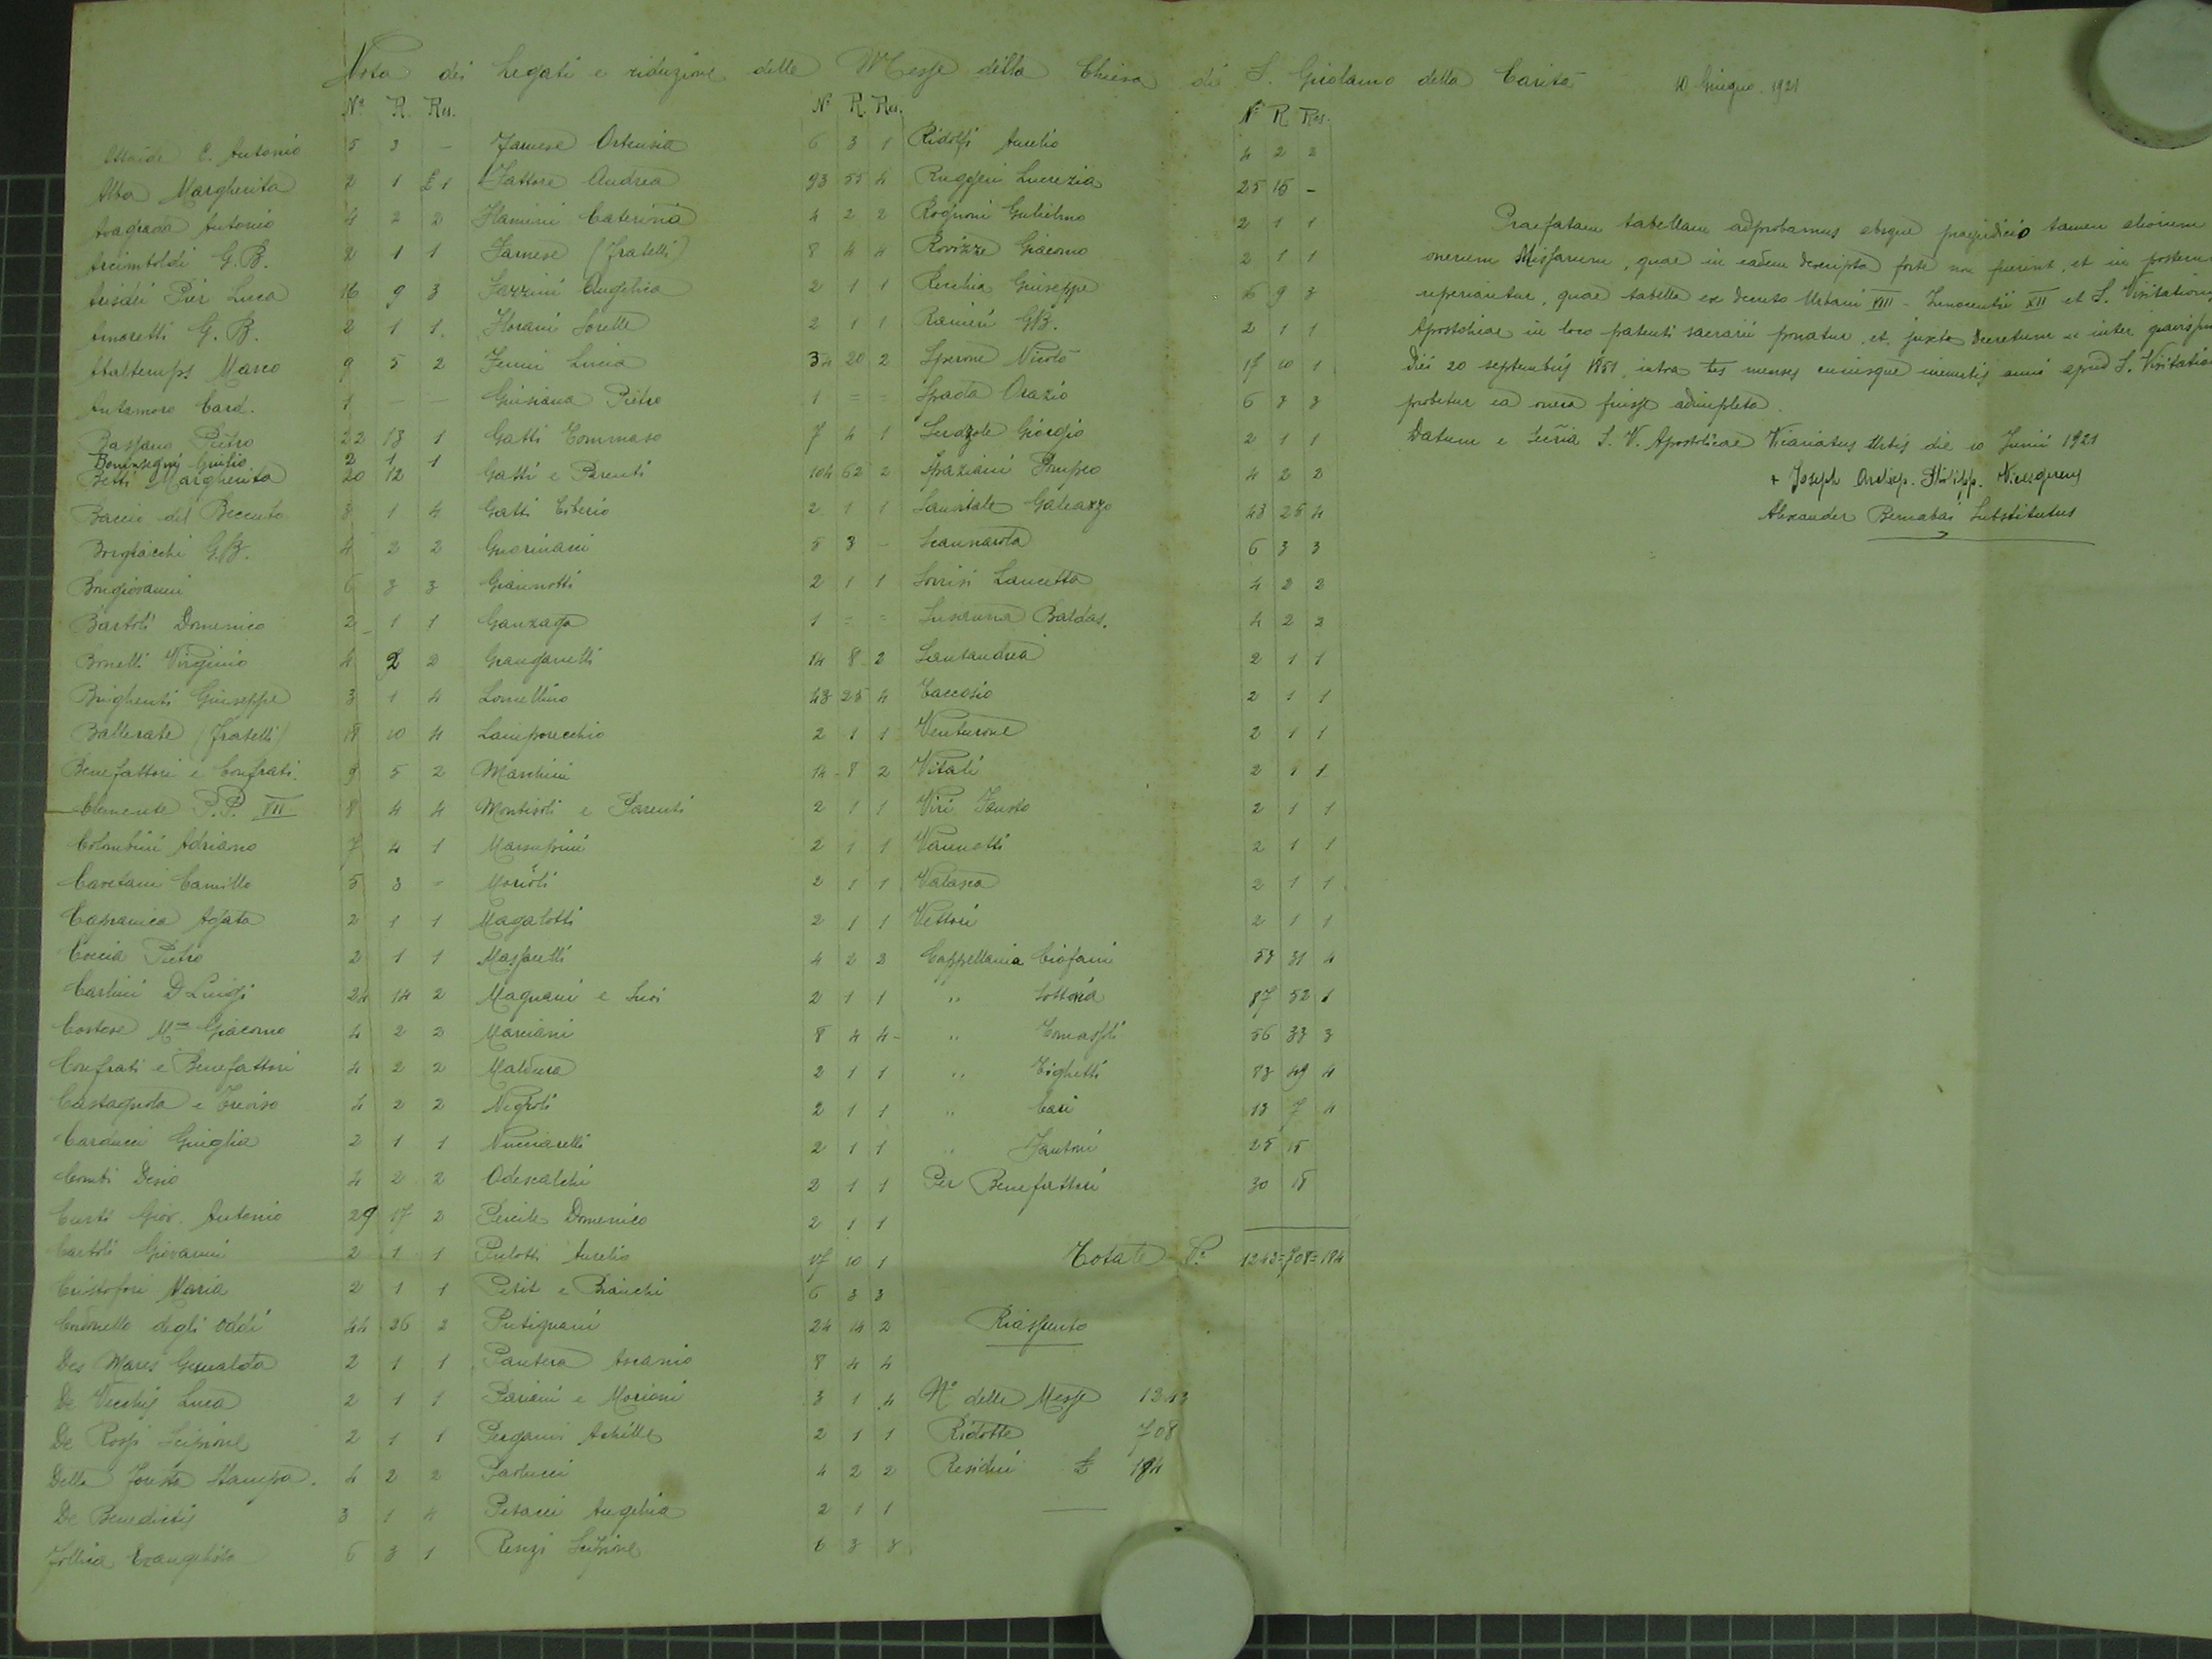 Nota dei Legati e riduzione delle Messe della Chiesa di S. Girolamo della Carità 10 Giugno 1921
N° R. Res.
C. Antonio 5 3 –
Alba Margherita 2 1 £ 1
Antonio 4 2 2
Arcimboldi G. B. 2 1 1
Pier Luca 16 9 3
Amoretti G. B. 2 1 1
Altaltemps Marco 9 5 2
Antamoro Card. 1 – –
Bassano Pietro 22 13 1
Giulio 2 1 1
Betti Margherita 20 12
Baccio del Beccuto 3 1 4
G.B. 4 2 2
Bongiovanni 6 3 3
Bartoli Domenico 2 1 1
Bonelli Virginio 4 2 2
Brighenti Giuseppe 3 1 4
Ballerate (Fratelli) 18 10 4
Benefattori e Confrati. 9 5 2
Clemente P.P. VII 8 4 4
Colombini Adriano 7 4 1
Caetani Camillo 5 3 –
Capranica Agata 2 1 1
Coccia Pietro 2 1 1
Carlini D Luigi 24 14 2
Giacomo 4 2 2
Confrati e Benefattori 4 2 2
Castagnola e Treviso 4 2 2
Carducci Giuglia 2 1 1
Conti Desio 4 2 2
Curti Giov. Antonio 29 17 2
Bartoli Giovanni 2 1 1
Cristofori Maria 2 1 1
degli Oddi 44 26 2
Des Mares 2 1 1
De Vecchis Luca 2 1 1
De Rossi Scipione 2 1 1
Della Stampa. 4 2 2
De Benedictis 3 1 4
Evangelista 6 3 1
N° R. Res.
Farnese Ortensia 6 3 1
Fattore Andrea 93 55 4
Flamini Caterina 4 2 2
Farnese (Fratelli) 8 4 4
Fazzini Angelica 2 1 1
Florani Sorelle 2 1 1
Lucia 34 20 2
Pietro 1 = =
Gatti Tommaso 7 4 1
Gatti e Parenti 104 62 2
Gatti Tiberio 2 1 1
Guarinacci 5 3 –
Giannotti 2 1 1
Ganzaga 1 = =
14 8 2
Lomellino 43 25 4
Lamporecchio 2 1 1
Marchini 14 8 2
e Parenti 2 1 1
2 1 1
2 1 1
Magalotti 2 1 1
Massarelli 4 2 2
Magnani e Suoi 2 1 1
Marciani 8 4 4 –
Maldura 2 1 1
Negroli 2 1 1
Nucciarelli 2 1 1
Odescalchi 2 1 1
Domenico 2 1 1
Aurelio 17 10 1
Petit e Bianchi 6 3 3
Putignani 24 14 2
Pantera Ascanio 8 4 4
Pariani e Moriani 3 1 4
Pergami Achille 2 1 1
Paolucci 4 2 2
Petacci Angelica 2 1 1
Renzi Scipione 6 3 3
N° R Res.
Ridolfi Aurelio 4 2 2
Ruggeri Lucrezia 25 15 –
Rognoni Gulielmo 2 1 1
Rovizza Giacomo 2 1 1
Giuseppe 16 9 3
Ranieri GB. 2 1 1
Sperone Nicolò 17 10 1
Spada Orazio 6 3 3
Giorgio 2 1 1
Spaziani Pompeo 4 2 2
Sanvitale Galeazzo 43 25 4
Scannarola 6 3 3
Lancetta 4 2 2
Baldas. 4 2 2
Santandrea 2 1 1
2 1 1
Venturone 2 1 1
Vitali 2 1 1
Viri Fausto 2 1 1
Vannotti 2 1 1
Valasca 2 1 1
Vettori 2 1 1
Cappellania Ciofani 53 31 4
" 87 52 1
" 56 33 3
" Tighetti 83 49 4
" 13 7 4
" Fantoni 25 15
Per Benefattori 30 18
Totale 1243=708=184
Riassunto
N° delle Messe 1243
Ridotte 708
Residui £ 184
Praefatam tabellam adprobamus absque praejudicio tamen aliorum
onerum Missarum, quae in eadem descripta forte non fuerint, et in
reperiantur, quae tabella ex decreto Urbani VIII – Innocentii XII et S.
Apostolicae in loco patenti sacrarii ponatur, et juxta decretum
diei 20 septembris 1851, intra menses cuiusque ineuntis anni apud S.
probetur ea onera fuisse adimpleta.
Datum e Secria S. V. Apostolicae Vicariatus Urbis die 10 Junii 1921
+ Joseph Archiep. Philipp. Vicesgerens
Alexander Bernabai Substitutus